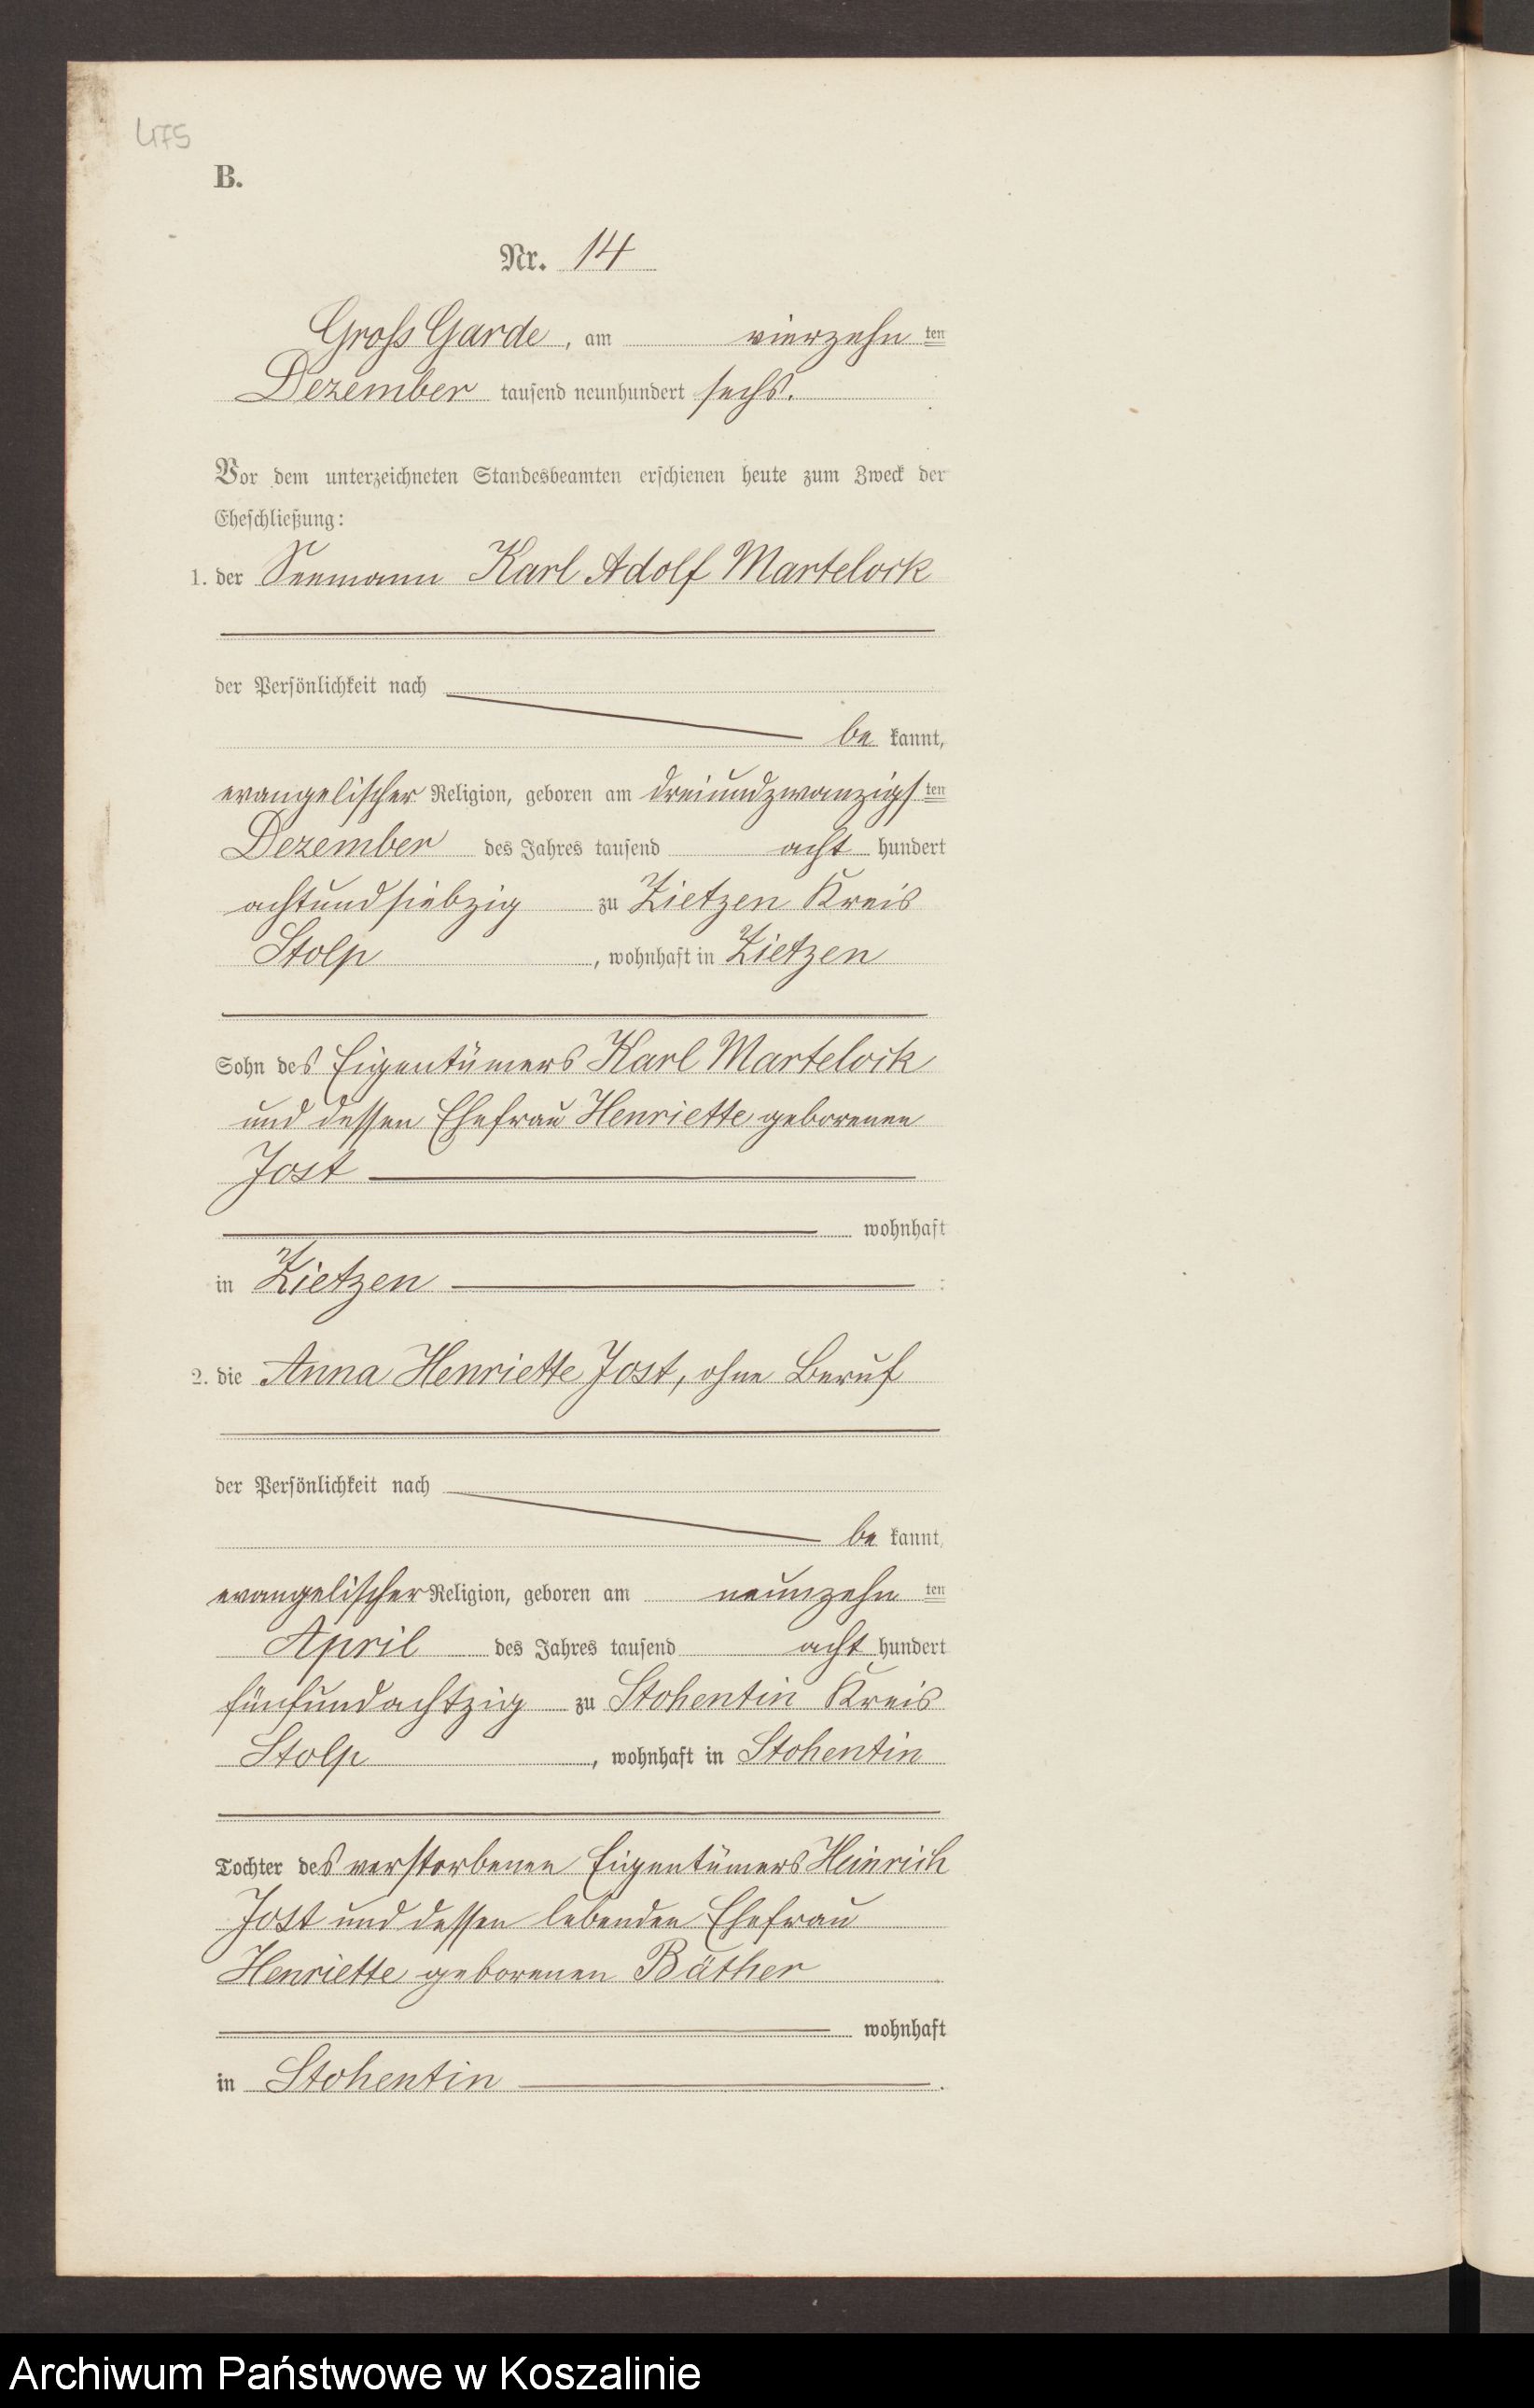 475
B.
Nr. 14
Gross Garde, am vierzehn ten
Dezember tausend neunhundert sechs.
Vor dem unterzeichneten Standesbeamten erschienen heute zum Zweck der
Eheschließung:
1. der Seemann Karl Adolf Martelock
der Persönlichkeit nach
be kannt,
evangelischer Religion, geboren am dreiundzwanzigsten
Dezember des Jahres tausend acht hundert
achtundsiebzig zu Zietzen Kreis
Stolp, wohnhaft in Zietzen
Sohn des Eigentümers Karl Martelock
und dessen Ehefrau Henriette geborenen
Jost
wohnhaft
in Zietzen :
2. die Anna Henriette Jost, ohne Beruf
der Persönlichkeit nach
be kannt,
evangelischer Religion, geboren am neunzehn ten
April des Jahres tausend acht hundert
fünfundachtzig zu Stohentin Kreis
Stolp, wohnhaft in Stohentin
Tochter des verstorbenen Eigentümers Heinrich
Jost und dessen lebenden Ehefrau
Henriette geborenen Bäther
wohnhaft
in Stohentin.
Archiwum Państwowe w Koszalinie